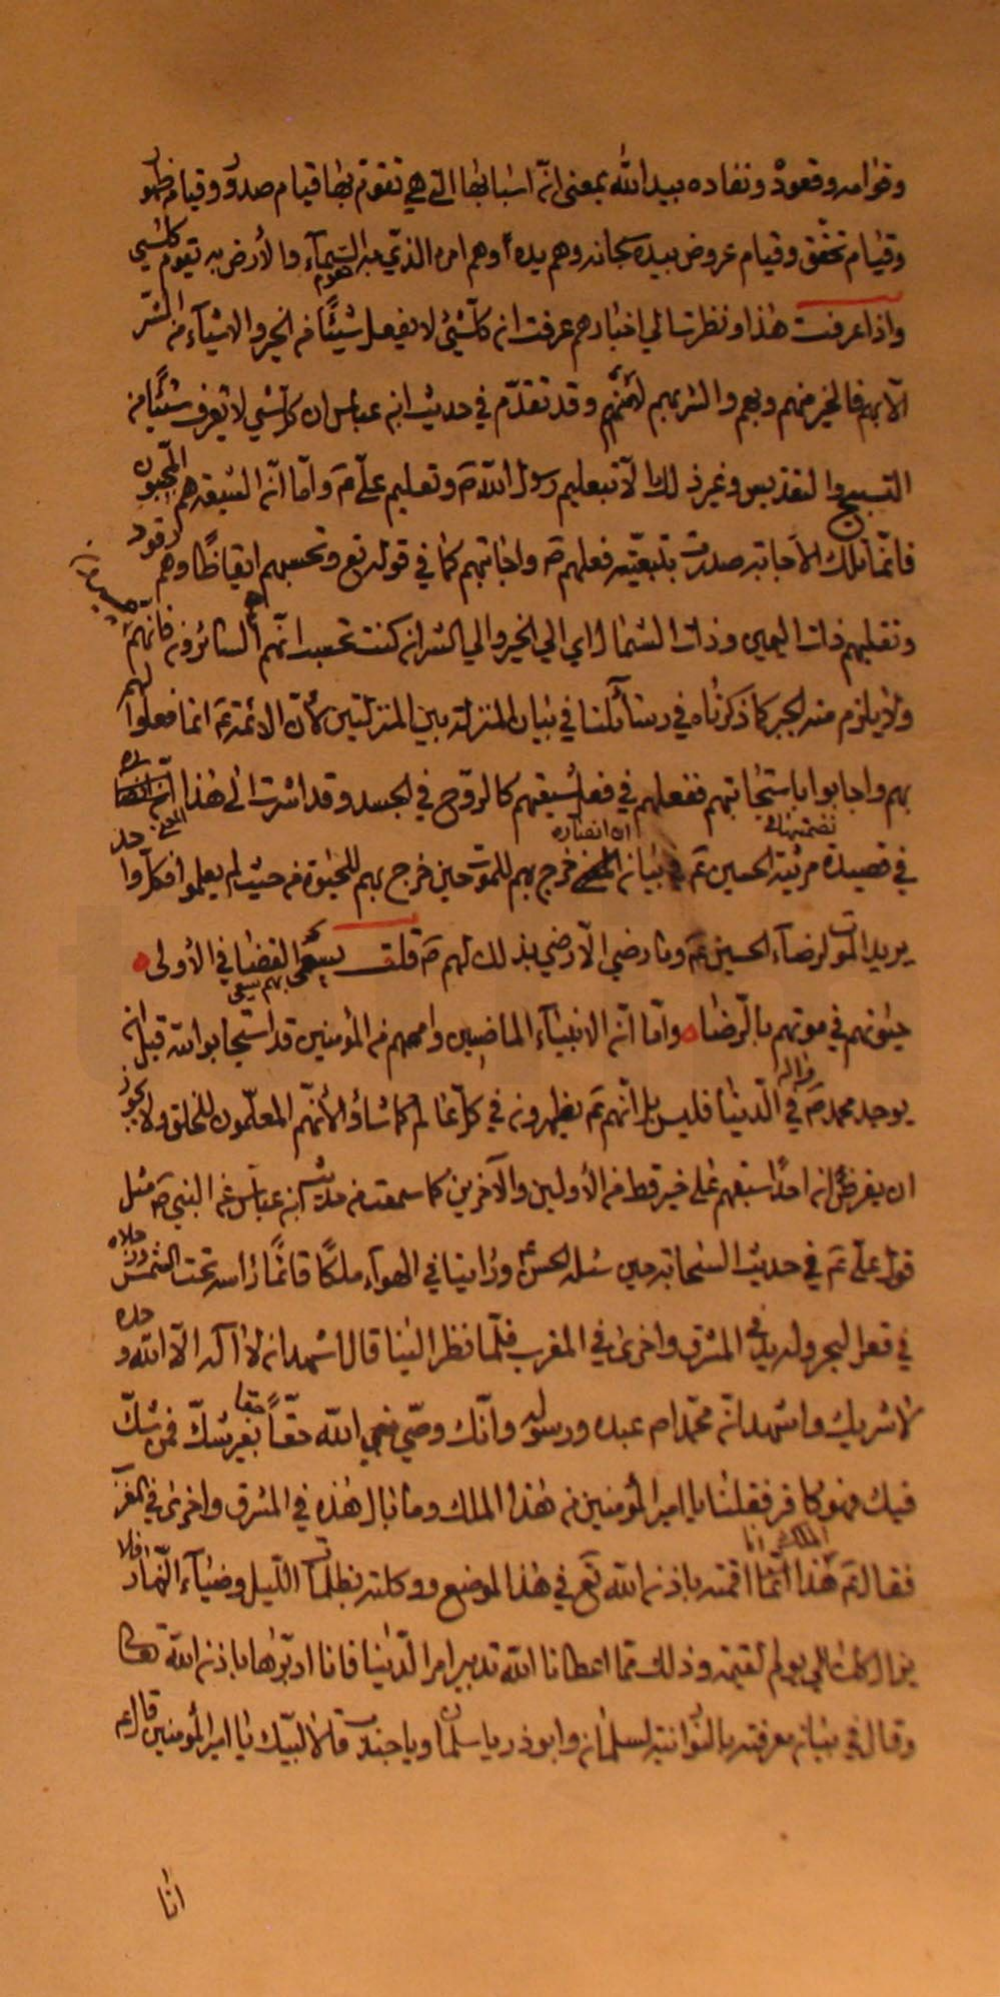 وقوامه وقعوده ونفاده بيد الله بمعنى انّ اسبابها التي هي تقوّم بها قيام صدور وقيام ظهور
وقيام تحقّق وقيام عروض بيده سبحانه وهم يده وهم امره الذي به السمآء والأرض به تقوم كلّ شيء
واذا عرفت هذا ونظرت الي اخبارهم عرفت انه كلّ شيء لا يفعل شيئًا من الخير والاشيآء من الشّر
الّا بهم فالخير منهم وبهم والشر بهم وقد تقدّم في حديث ابن عباس ان كلّ شيء لا يعرف شيئًا من
التسبيح والتقديس وغير ذلك الّا بتعليم رسول الله ص وتعليم عليّ ع وامّا انّ الشيعة هم المجيبون
فانّما تلك الاجابة صدرت بتبعيّة فعلهم ص واجابتهم كما في قوله تع وتحسبهم ايقاظًا وهم رقود
ونقلبهم ذات اليمين وذات الشمال اي الي الخير والي الشر ان كنت تحسب انّهم السائرون فانّهم
ولا يلزم منه الجبر كما ذكرناه في رسائلنا في بيان المنزلة بين المنزلتين لأنّ الائمة ع انما فعلوا لهم
بهم واجابوا باستجابتهم ففعلهم في فعل شيعتهم كالروح في الجسد وقد اشرت الى هذا
في قصيدة مرثية الحسين ع في بيان ان انصاره خرج بهم للموت حين خرج بهم للحيوة من حيث لم يعلموا فكلّ
يريد الموت لرضآء الحسين ع وما رضي الّا رضي بذلك لهم ص قلت يسعى بهم القضا في الأولى
حتوفهم في موتهم بالرضا وامّا انّ الانبيآء الماضين واممهم من المؤمنين قد استجابوا لله قبل ان
يوجد محمد ص واله في الدنيا فليس بل انّهم ع يظهرون في كلّ عالم كما شاؤا لأنّهم المعلّمون للخلق ولا يجوز
ان يفرض انه احدًا سبقهم على خير قط من الأولين والآخرين كما سمعت من حديث ابن عباس عن النبي ص مثل
قول عليّ ع في حديث السحابة حين سئله الحسن ع وراينا في الهوآء ملكًا قائمًا راسه تحت الشمس ورجلاه
في قعر البحر وله يد في المشرق واخرى في المغرب فلمّا نظر الينا قال اشهد ان لا اله الّا الله وحده
لا شريك له واشهد انّ محمّدا ص عبده ورسوله وانّك وصيّ نبي الله حقًّا حقا بغير شكّ فمن شكّ
فيك فهو كافر فقلنا يا امير المؤمنين من هذا الملك وما بال هذه في المشرق واخرى في المغرب
فقال ع هذا الملك انا اقمته باذن الله تع في هذا الموضع ووكلته بظلمات الليل وضيآء النهار فلا
يزال كذلك الي يوم القيمة وذلك مما اعطانا الله تدبير امر الدنيا فانا ادبّرها باذن الله تعا
وقال في بيان معرفته بالنورانية لسلمان وابو ذر يا سلمان ويا جندب قالا لبيك يا امير المؤمنين قال ع
انا